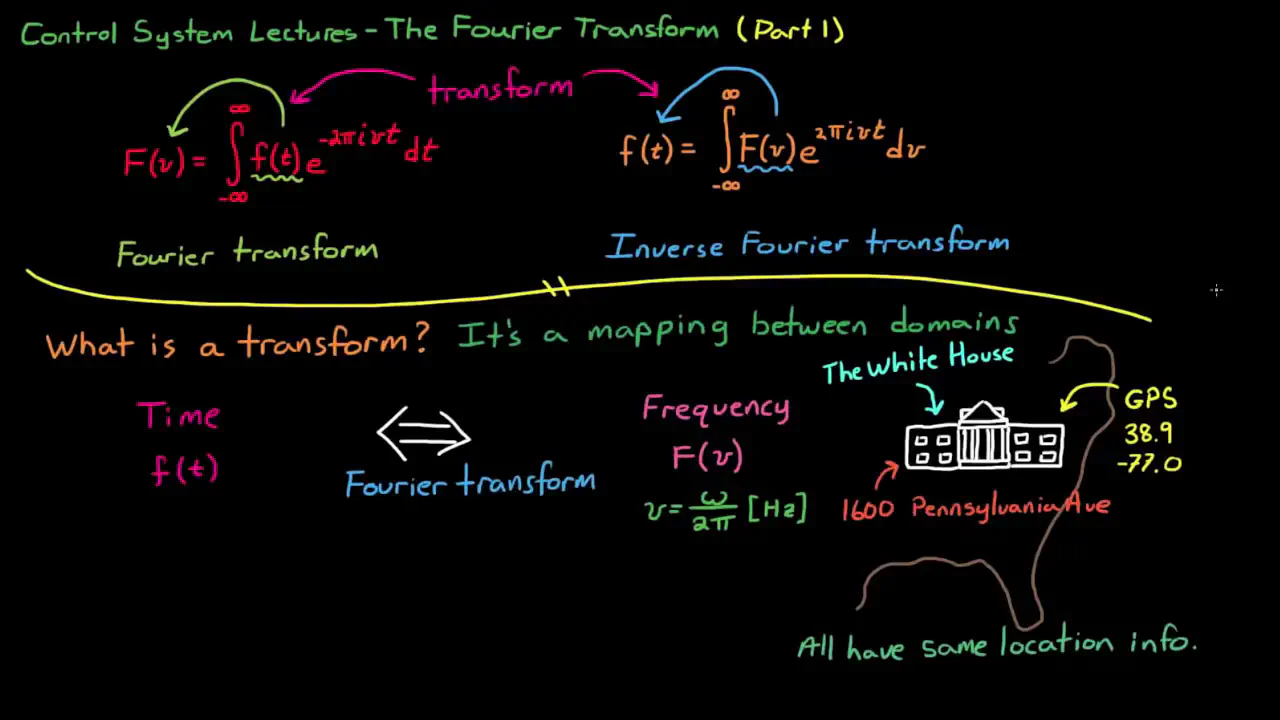 Control System Lectures - The Fourier Transform (Part 1)
transform
F(v) = ∫_{-∞}^{∞} f(t) e^{-2πivt} dt
f(t) = ∫_{-∞}^{∞} F(v) e^{2πivt} dv
Fourier transform
Inverse Fourier transform
What is a transform? It's a mapping between domains
The White House
Time
Frequency
GPS
38.9
-77.0
f(t)
F(v)
Fourier transform
v = ω/2π [Hz]
1600 Pennsylvania Ave
All have same location info.